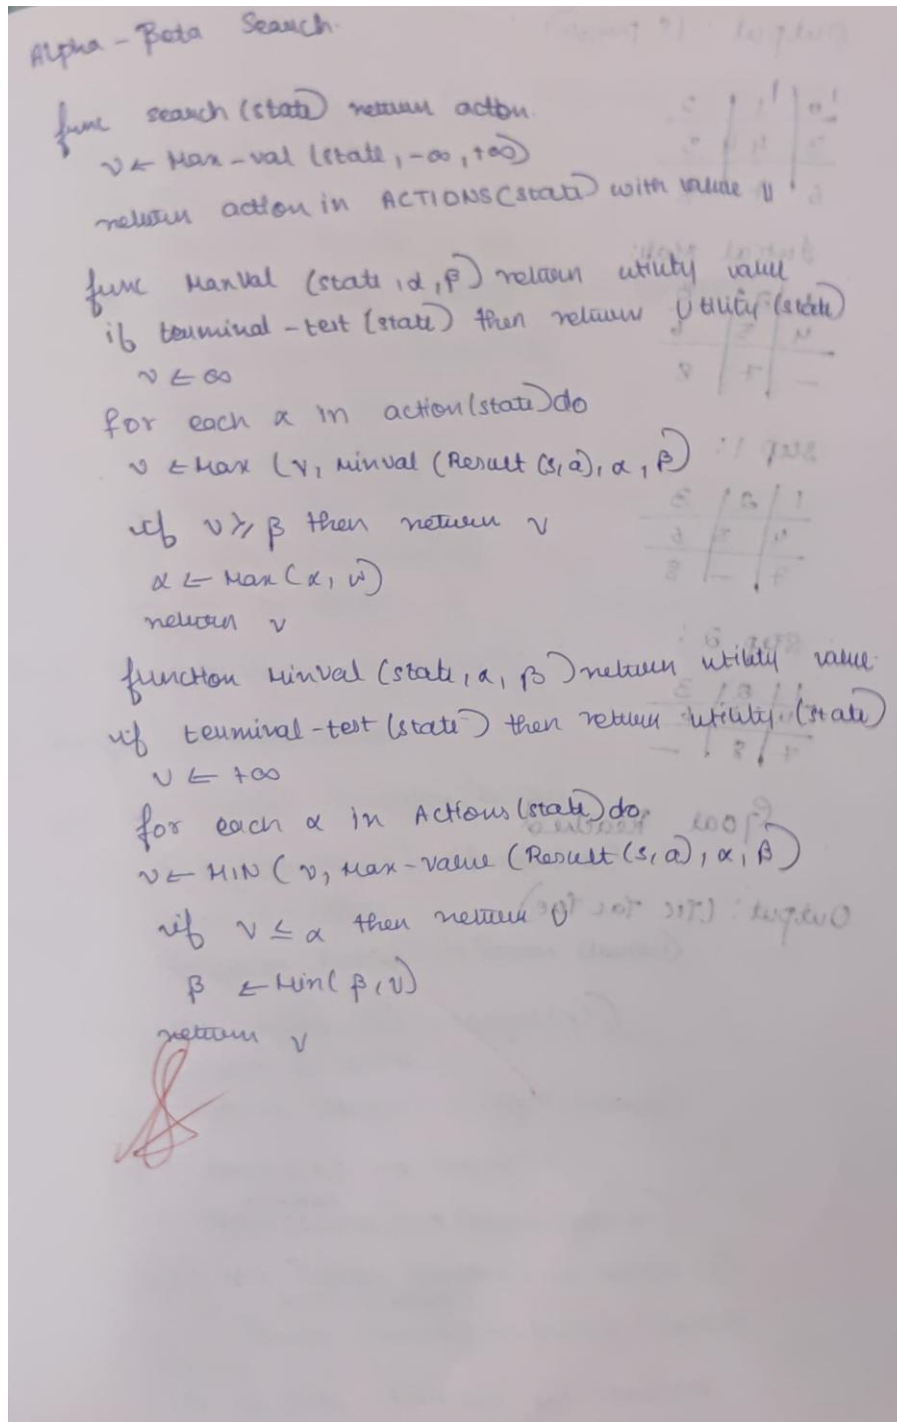 Alpha - Beta Search.
func search (state) return action.
v ← Max-val (state, -∞, +∞)
return action in ACTIONS (state) with value v
func Maxval (state, α, β) return utility value
if terminal-test (state) then return Utility (state)
v ← ∞
for each α in action (state) do
v ← Max (v, Minval (Result (s, a), α, β)
if v ≥ β then return v
α ← Max (α, v)
return v
function Minval (state, α, β) return utility value
if terminal-test (state) then return utility (state)
v ← +∞
for each α in Actions (state) do
v ← MIN (v, Max-value (Result (s, a), α, β)
if v ≤ α then return v
β ← Min (β, v)
return v